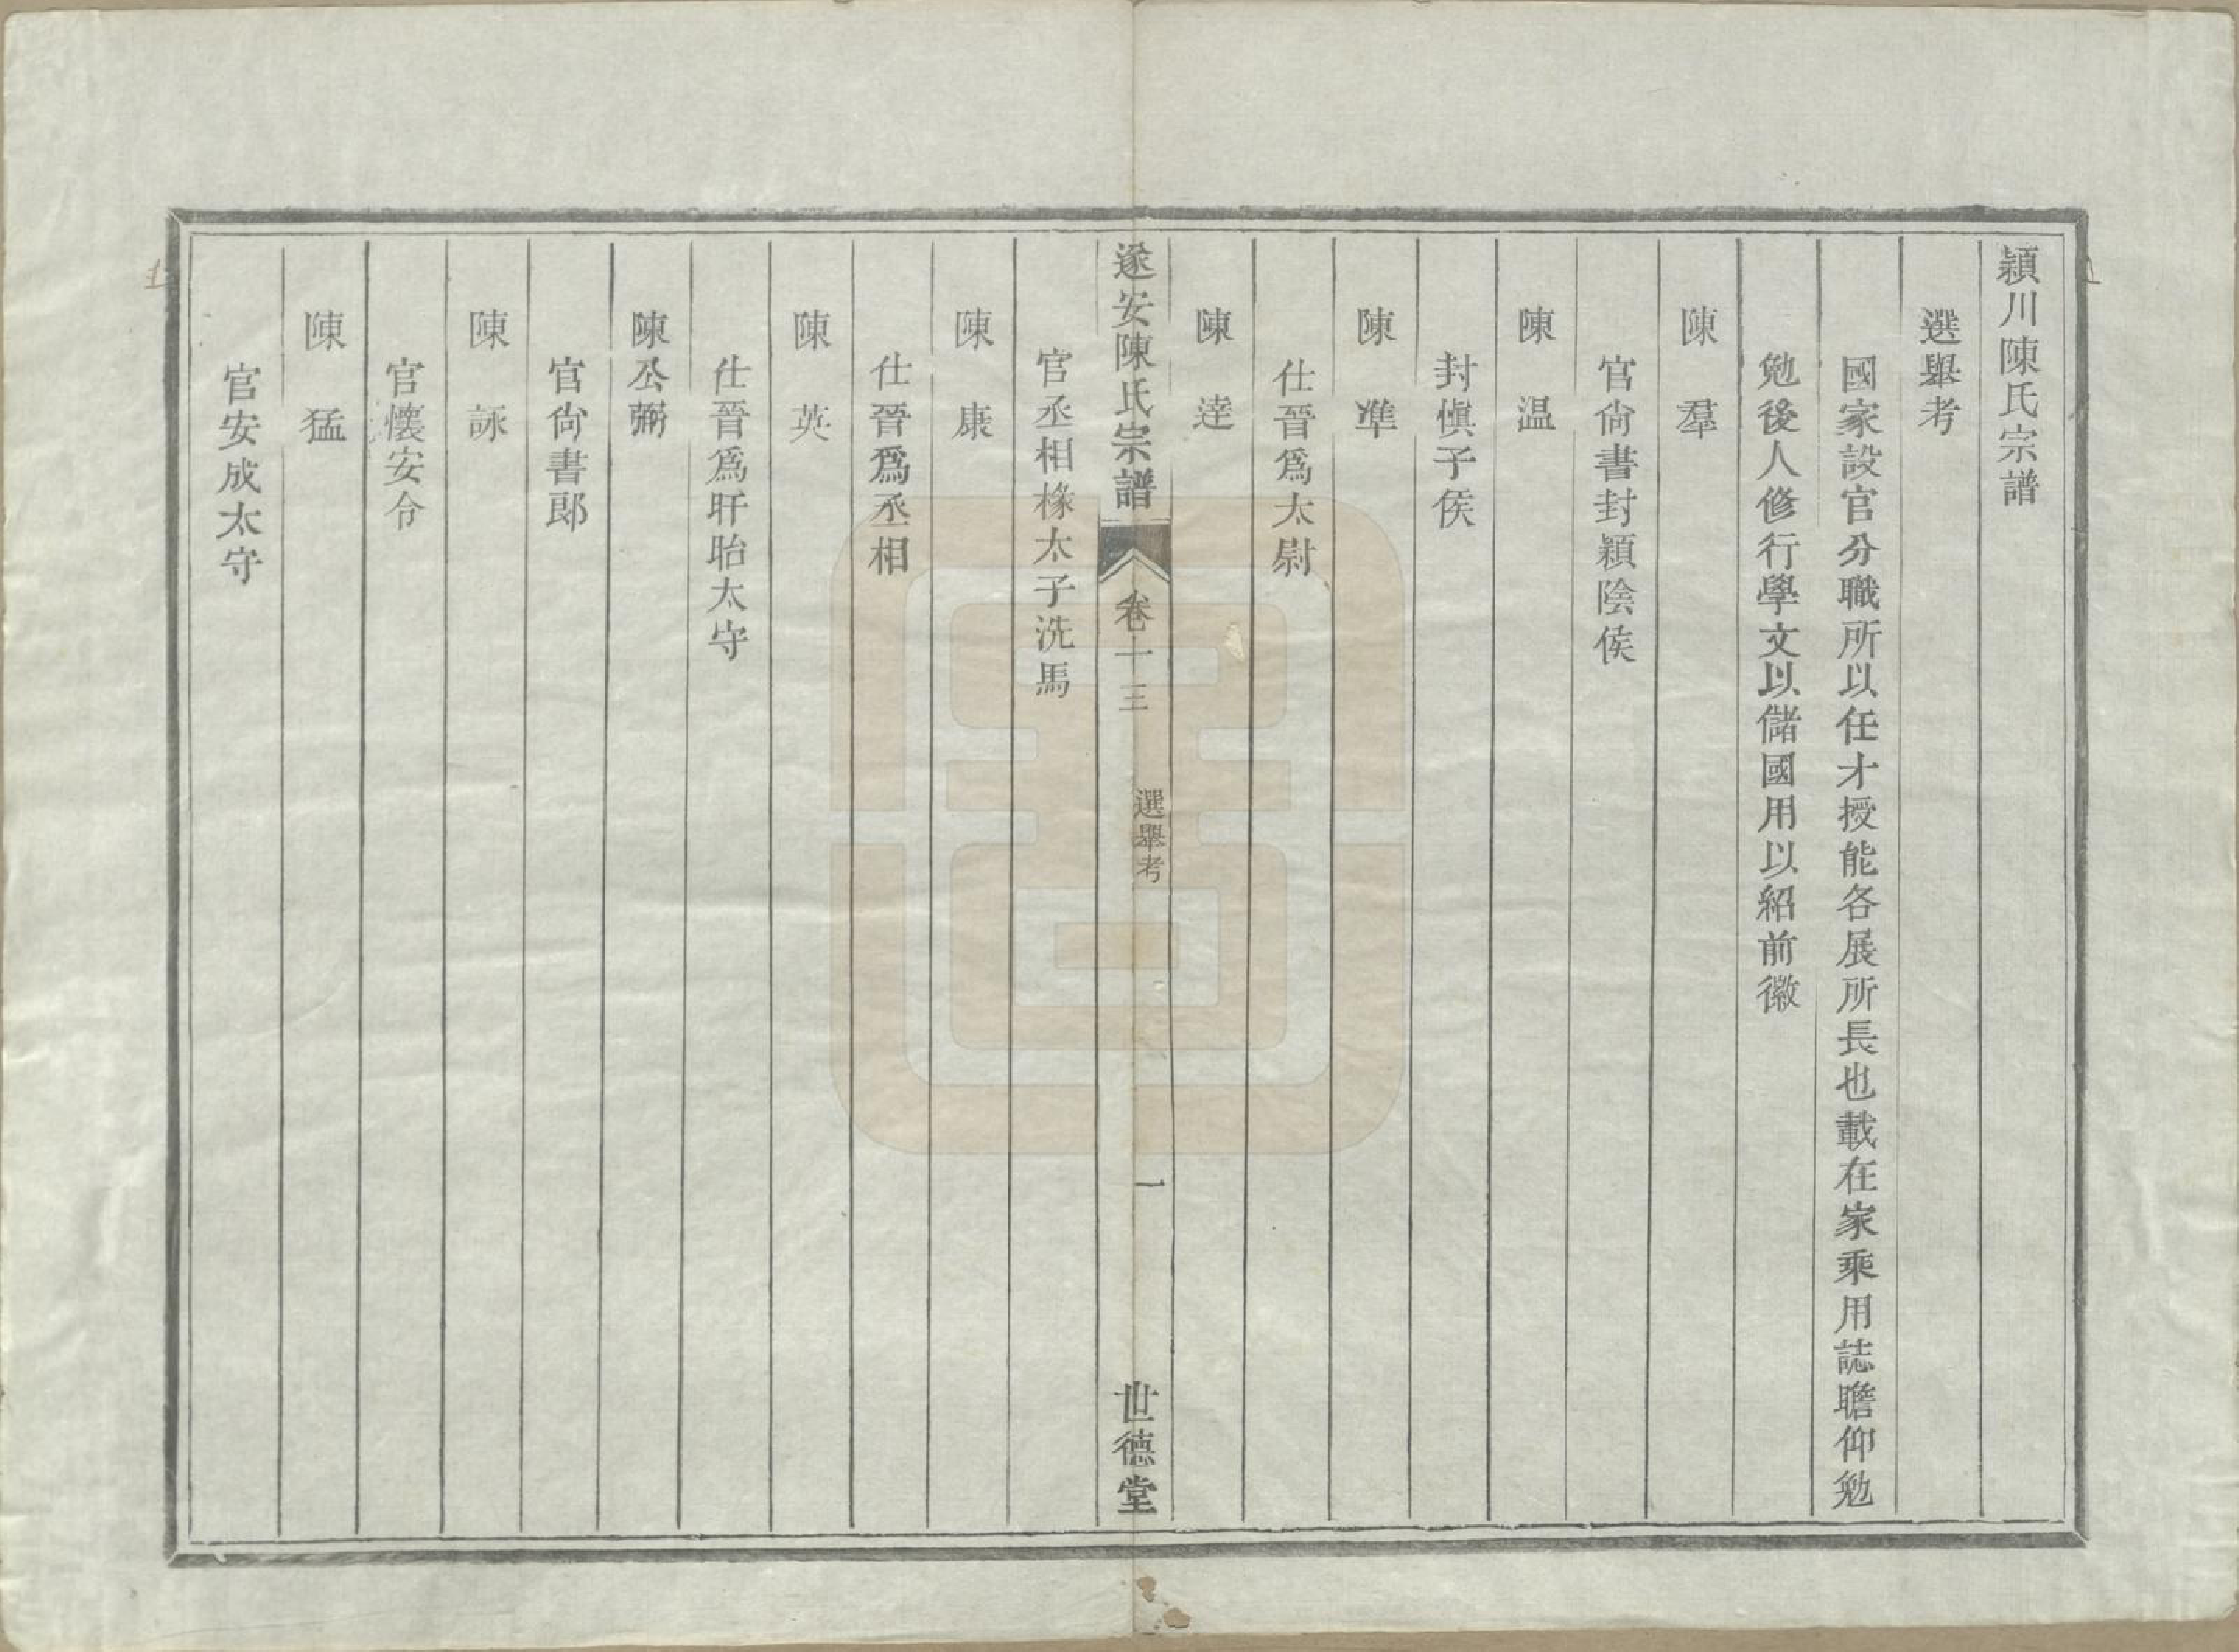 潁川陳氏宗譜
選舉考
國家設官分職所以任才授能各展所長也載在家乘用誌瞻仰勉
勉後人修行學文以儲國用以紹前徽
陳羣
官尙書封潁陰侯
陳温
封愼子侯
陳準
仕晉爲太尉
陳逹
遂安陳氏宗譜 卷十三 選舉考 一 世德堂
官丞相橡太子洗馬
陳康
仕晉爲丞相
陳英
仕晉爲盱眙太守
陳公弼
官尙書郎
陳詠
官懷安令
陳猛
官安成太守